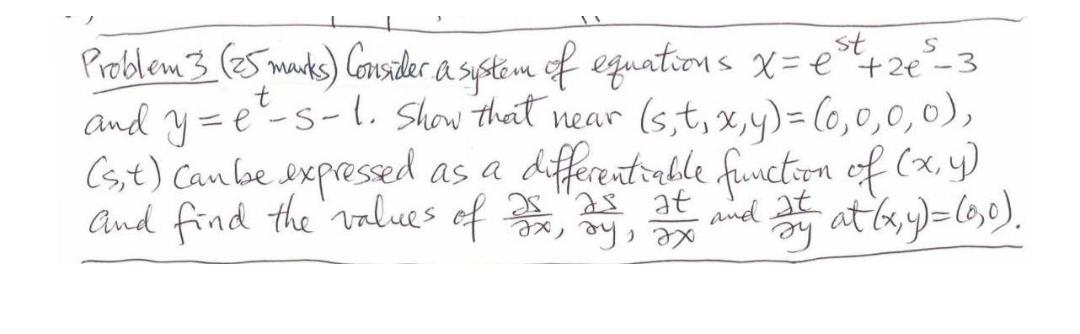 Problem 3 (25 marks) Consider a system of equations x = e^{st} + 2e^{s} - 3
and y = e^{t} - s - 1. Show that near (s,t,x,y) = (0,0,0,0),
(s,t) can be expressed as a differentiable function of (x,y)
and find the values of ∂s/∂x, ∂s/∂y, ∂t/∂x and ∂t/∂y at (x,y)=(0,0).